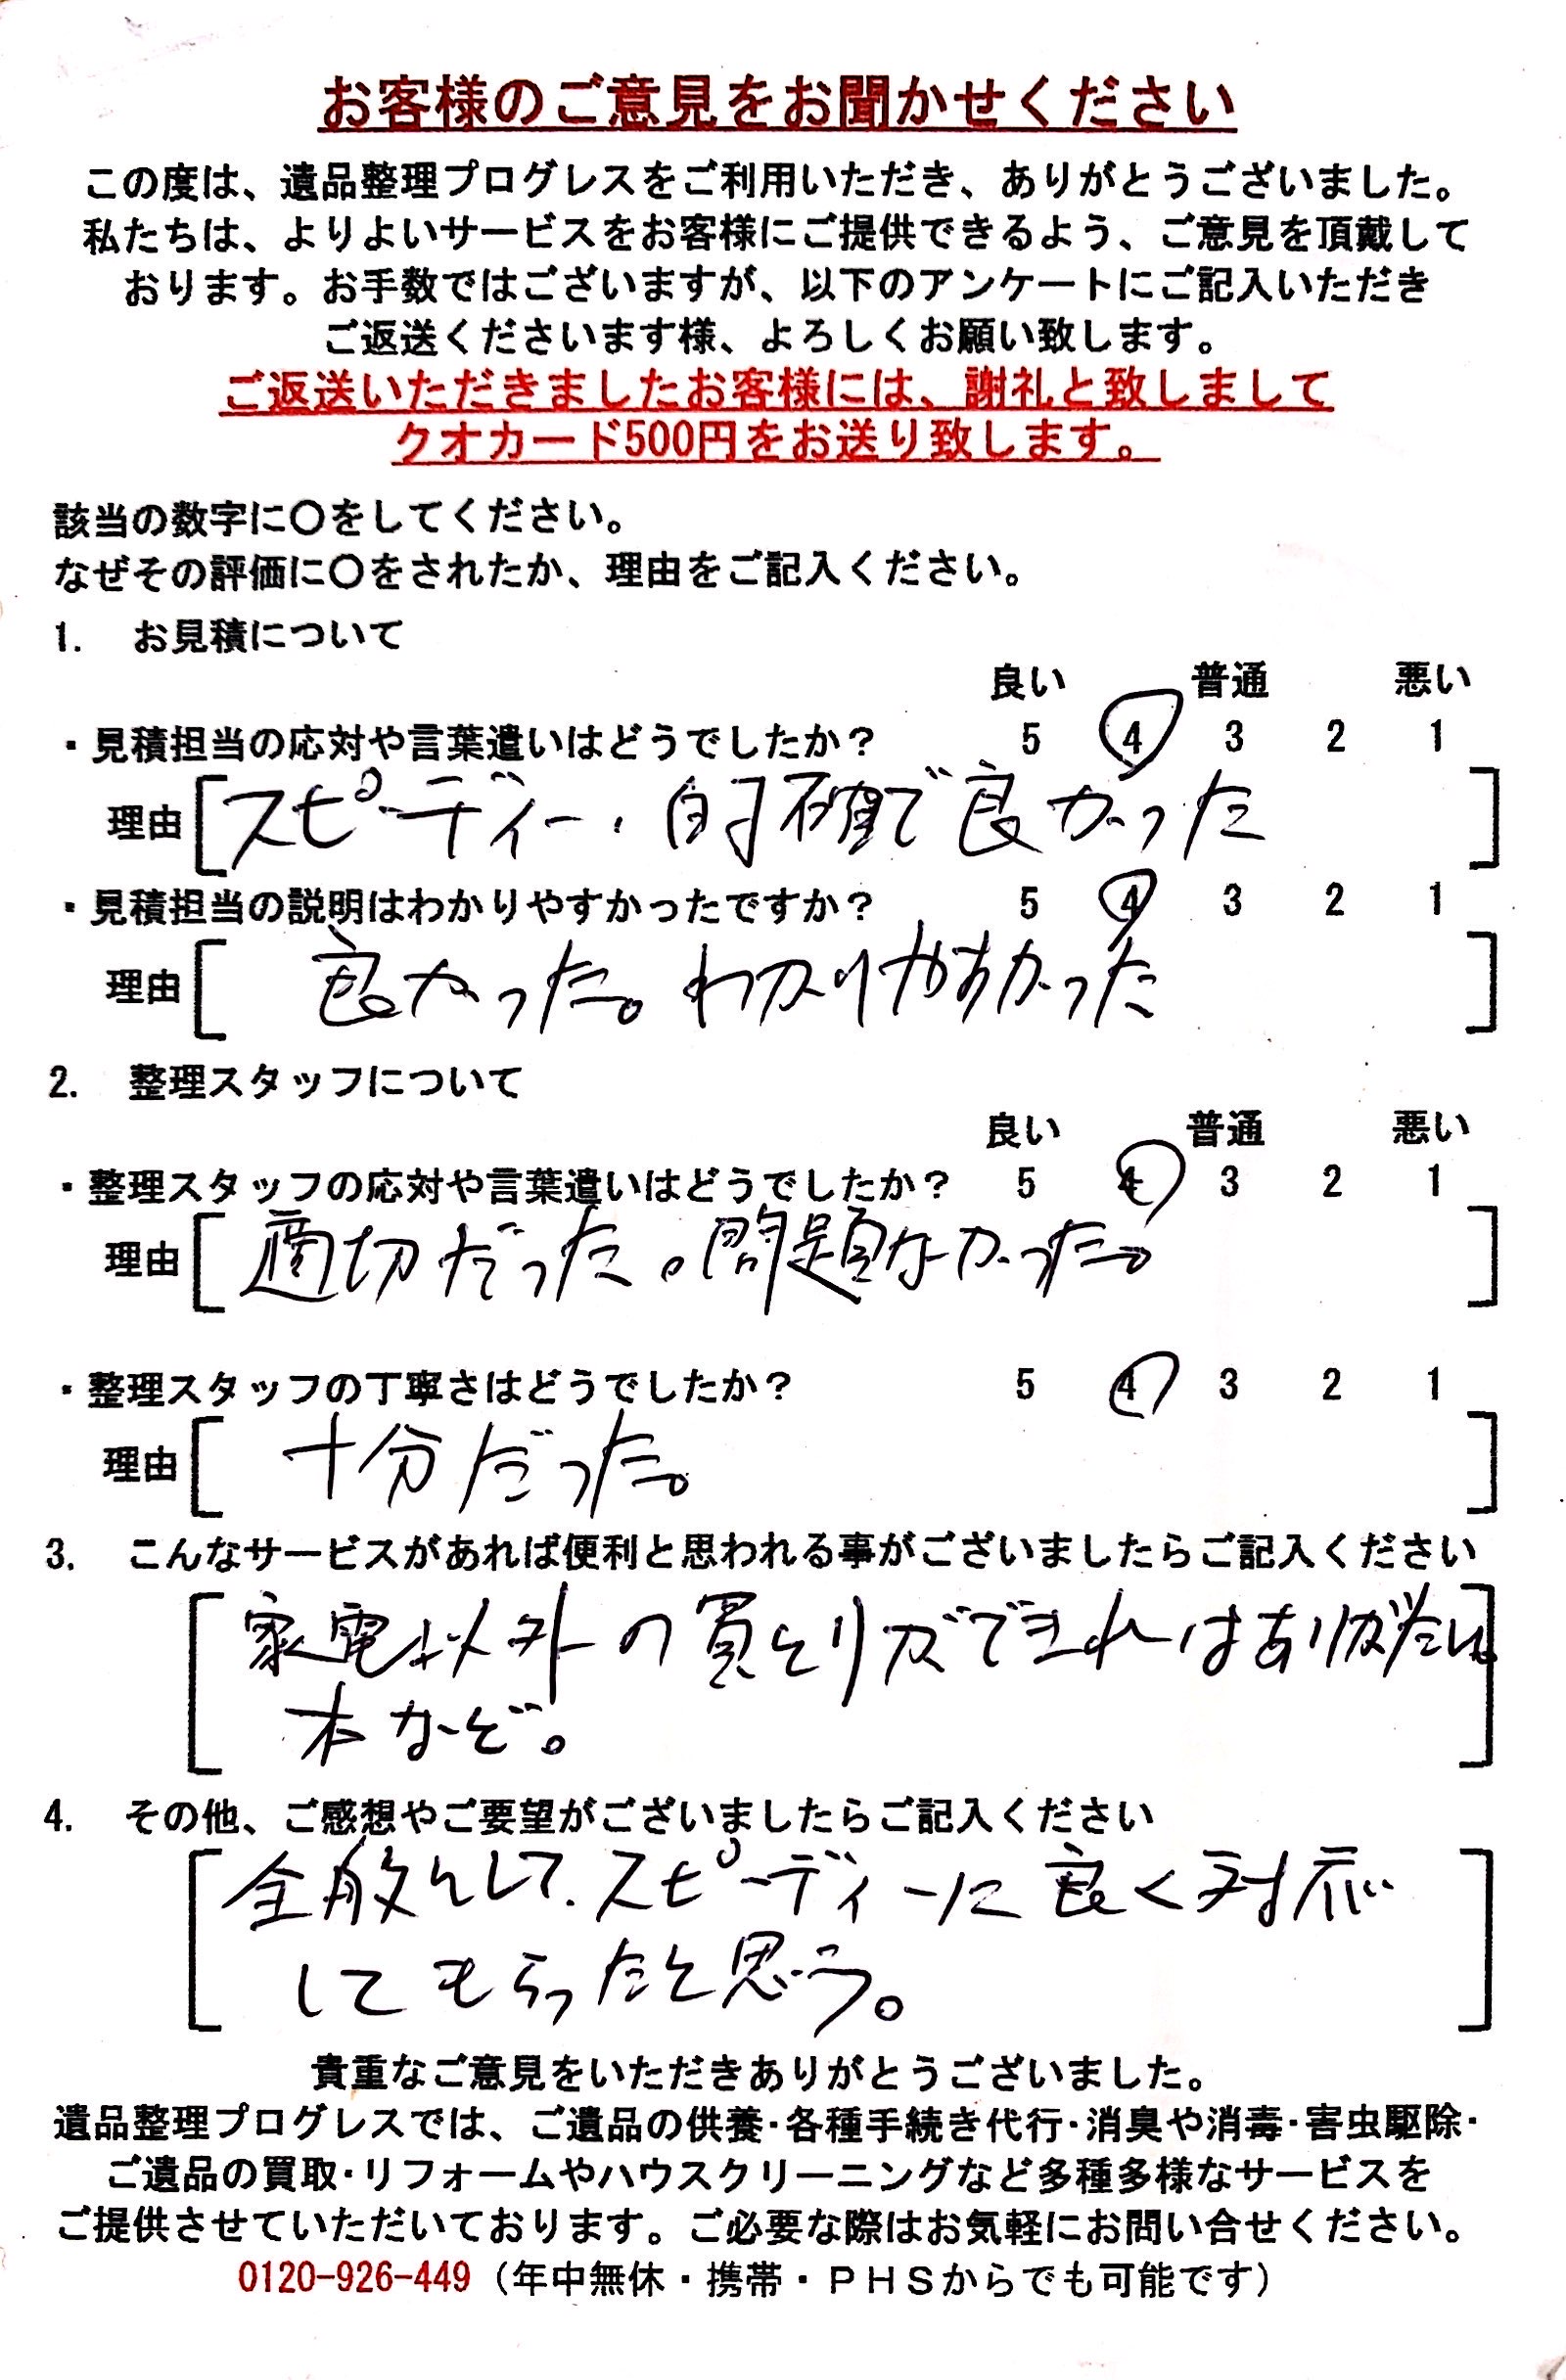 お客様のご意見をお聞かせください
この度は、遺品整理プログレスをご利用いただき、ありがとうございました。
私たちは、よりよいサービスをお客様にご提供できるよう、ご意見を頂戴して
おります。お手数ではございますが、以下のアンケートにご記入いただき
ご返送くださいます様、よろしくお願い致します。
ご返送いただきましたお客様には、謝礼と致しまして
クオカード500円をお送り致します。
該当の数字に〇をしてください。
なぜその評価に〇をされたか、理由をご記入ください。
1. お見積について
良い 普通 悪い
・見積担当の応対や言葉遣いはどうでしたか? 5 4 3 2 1
理由[スピーディー、的確で良かった]
・見積担当の説明はわかりやすかったですか? 5 4 3 2 1
理由[良かった。わかりやすかった]
2. 整理スタッフについて
良い 普通 悪い
・整理スタッフの応対や言葉遣いはどうでしたか? 5 4 3 2 1
理由[適切だった。問題なかった。]
・整理スタッフの丁寧さはどうでしたか? 5 4 3 2 1
理由[十分だった。]
3. こんなサービスがあれば便利と思われる事がございましたらご記入ください
[家電以外の買とりができればありがたい。
本など。]
4. その他、ご感想やご要望がございましたらご記入ください
[全般としてスピーディーに良く対応
してもらったと思う。]
貴重なご意見をいただきありがとうございました。
遺品整理プログレスでは、ご遺品の供養・各種手続き代行・消臭や消毒・害虫駆除・
ご遺品の買取・リフォームやハウスクリーニングなど多種多様なサービスを
ご提供させていただいております。ご必要な際はお気軽にお問い合せください。
0120-926-449(年中無休・携帯・PHSからでも可能です)